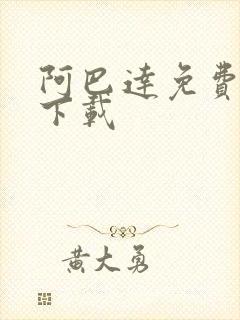 阿巴達免費
下載
黃大勇